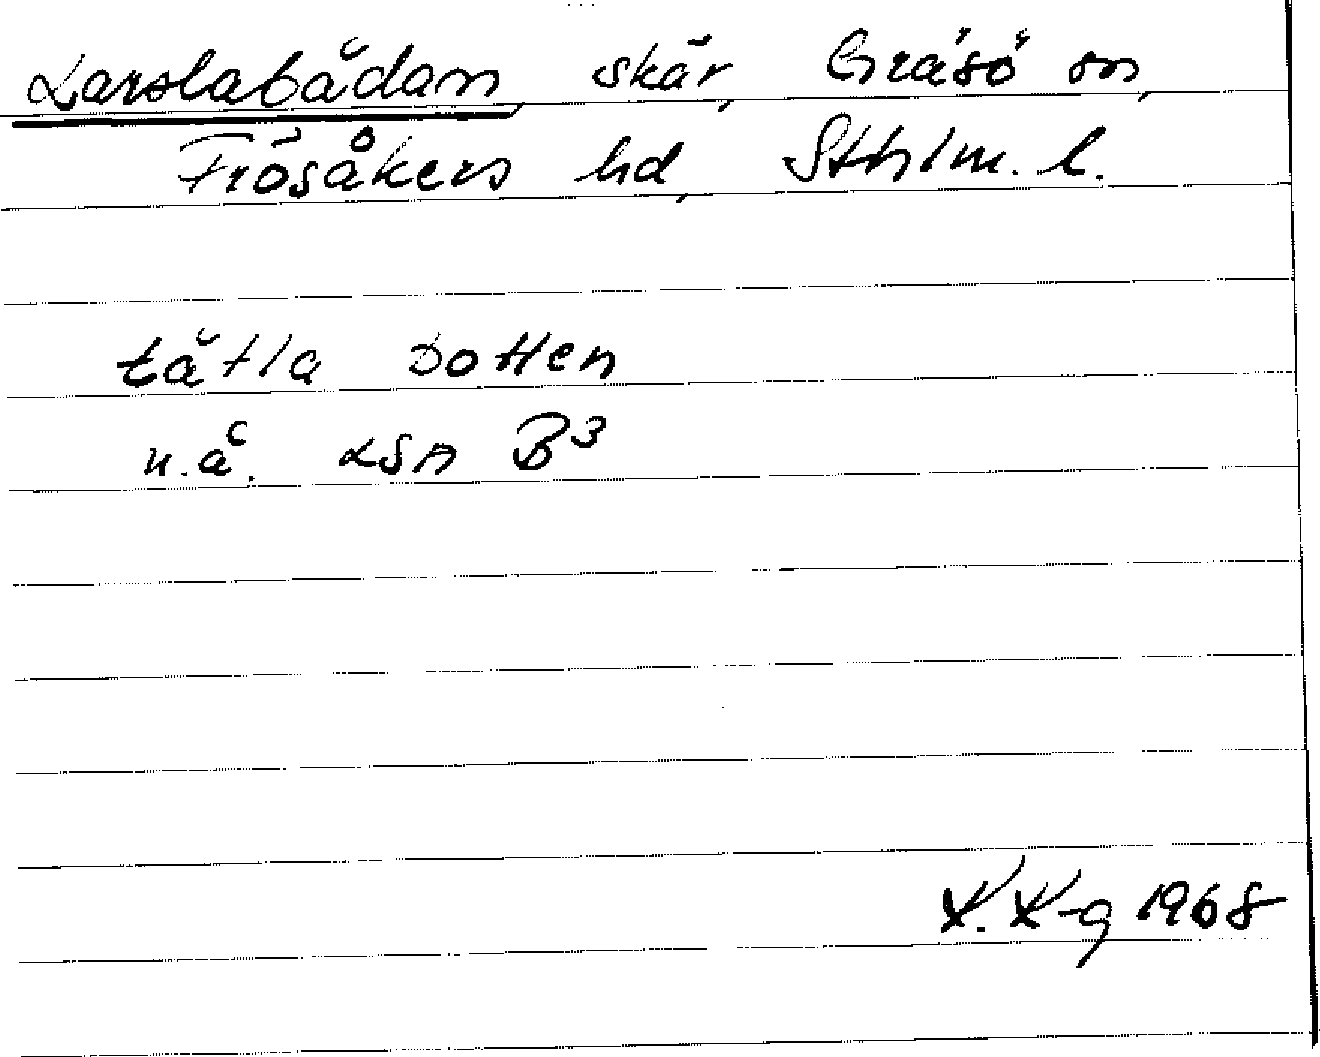 Larslabådan, skär, Gräsö sn,
Frösåkers hd, Sthlm. l.
tåtla Dotten
n.å. LSA B³
K. K-g 1968